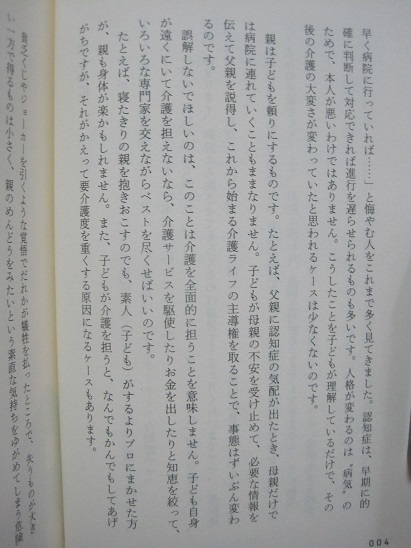 早く病院に行っていれば……」と悔やむ人をこれまで多く見てきました。認知症は、早期に的
確に判断して対応できれば進行を遅らせられるものも多いです。人格が変わるのは〝病気〟の
ためで、本人が悪いわけではありません。こうしたことを子どもが理解しているだけで、その
後の介護の大変さが変わっていたと思われるケースは少なくないのです。
親は子どもを頼りにするものです。たとえば、父親に認知症の気配が出たとき、母親だけで
は病院に連れていくこともままなりません。子どもが母親の不安を受け止めて、必要な情報を
伝えて父親を説得し、これから始まる介護ライフの主導権を取ることで、事態はずいぶん変わ
るのです。
誤解しないでほしいのは、このことは介護を全面的に担うことを意味しません。子ども自身
が遠くにいて介護を担えないなら、介護サービスを駆使したりお金を出したりと知恵を絞って、
いろいろな専門家を交えながらベストを尽くせばいいのです。
たとえば、寝たきりの親を抱きおこすのでも、素人（子ども）がするよりプロにまかせた方
が、親も身体が楽かもしれません。また、子どもが介護を担うと、なんでもかんでもしてあげ
がちですが、それがかえって要介護度を重くする原因になるケースもあります。
貧乏くじやジョーカーを引くような覚悟でだれかが犠牲を払ったところで、失うものが大き
い一方で得るものは小さく、親のめんどうをみたいという素直な気持ちをゆがめてしまう危険
004